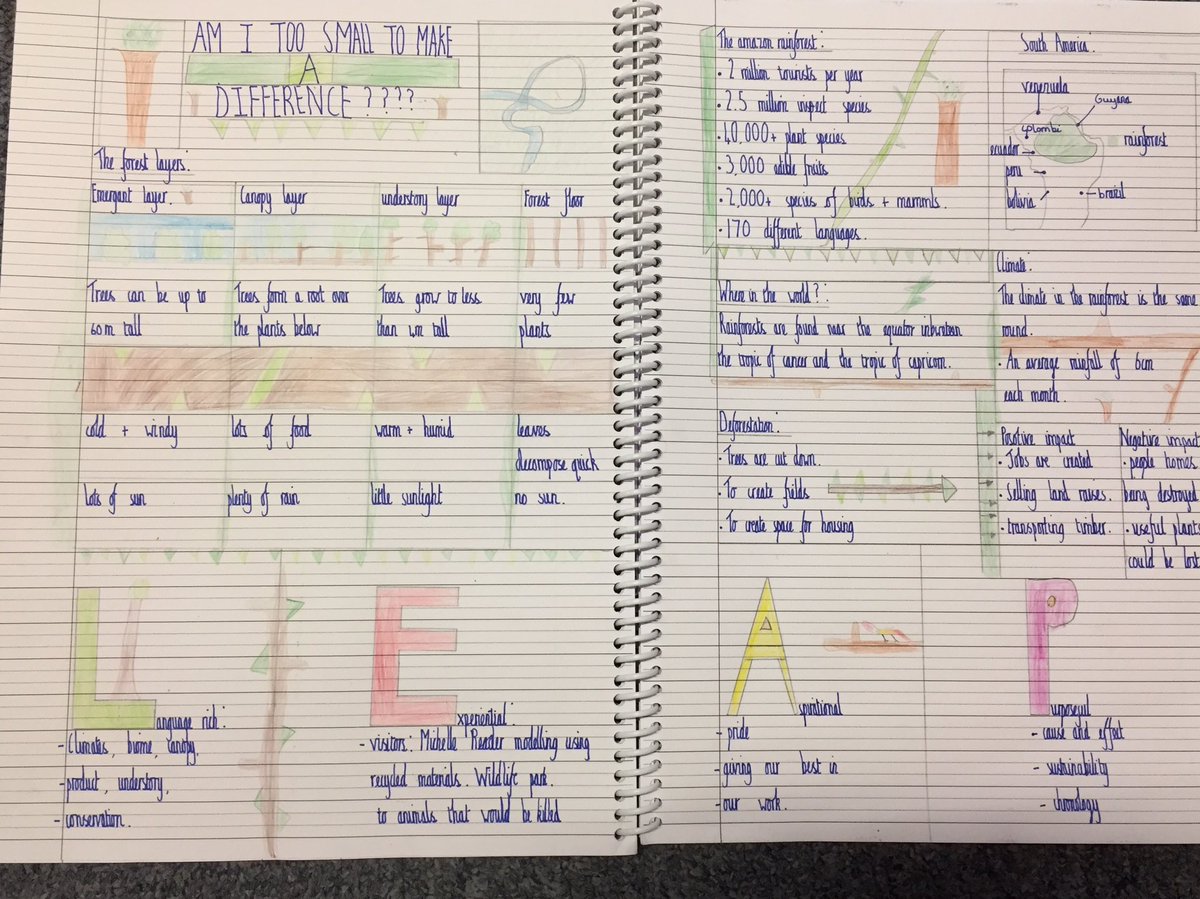 AM I TOO SMALL TO MAKE
A
DIFFERENCE ????
The forest layers:
Emergant layer.
Canopy layer
understory layer
Forest floor
Trees can be up to
60m tall
Trees form a root over
the plants below
Trees grow to less
than 4m tall
very few
plants
cold + windy
lots of food
warm + humid
leaves
decompose quick
lots of sun
plenty of rain
little sunlight
no sun.
Language rich:
- Climates, biome, canopy,
- product, understory,
- conservation.
Experiential:
- visitors: Michelle Reader modelling using
recycled materials. Wildlife park.
to animals that would be killed
The amazon rainforest:
• 2 million tourists per year
• 2.5 million insect species
• 40,000+ plant species
• 3,000 edible fruits
• 2,000+ species of birds + mammls.
• 170 different languages.
South America.
venenuela
Guyana
colombi
ecuador
rainforest
peru
bolivia
brazil
Where in the world?:
Rainforests are found near the equator inbwtean
the tropic of cancer and the tropic of capricorn.
Climate:
The climate in the rainforest is the same
round.
• An average rainfall of 6cm
each month.
Deforestation:
• Trees are cut down.
• To create fields
• To create space for housing
Positive impact
• Jobs are created
• Selling land raises.
• transporting timber.
Negative impact
• people homes
being destroyed
• useful plants
could be lost
Aspirational
- pride
- giving our best in
- our work.
Purposeful
- cause and effect
- sustainability
- chronology